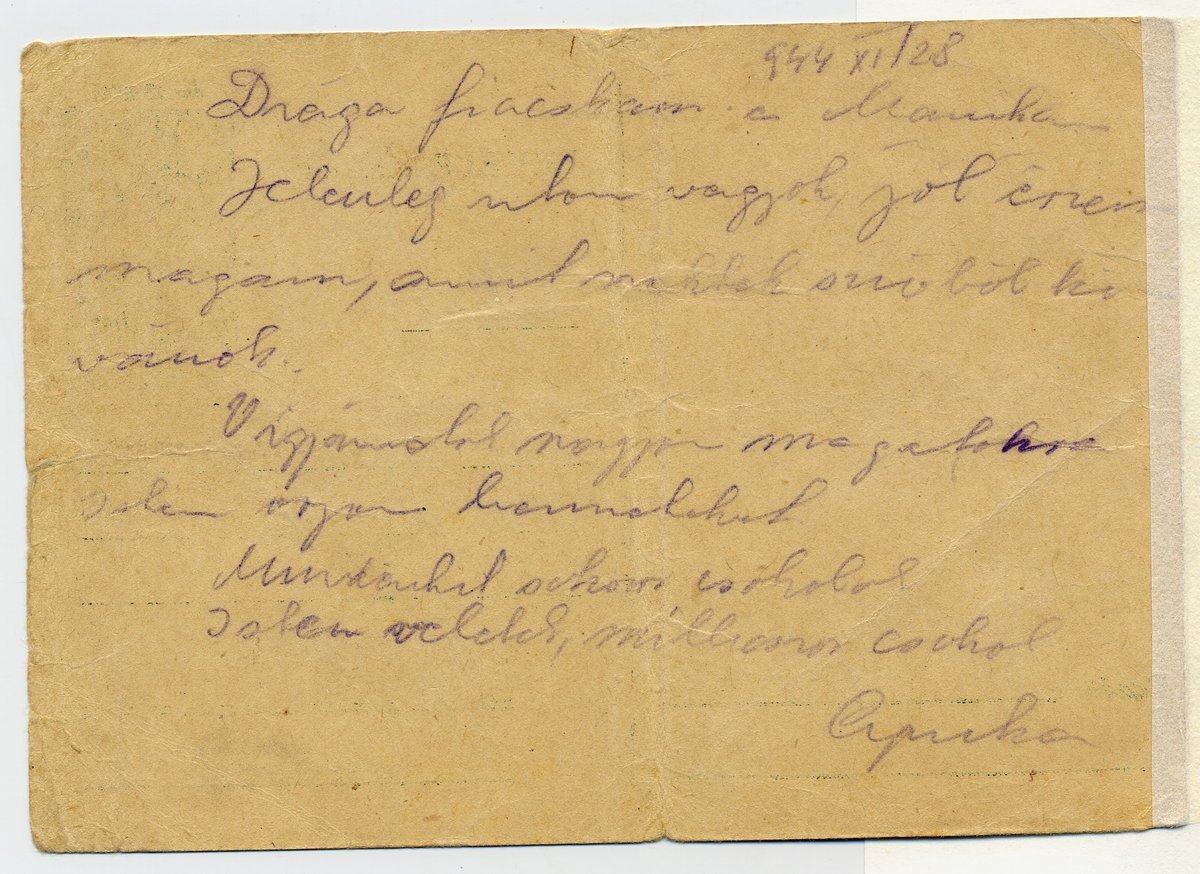 944 XI/28
Drága fiacskám é Manika
Jelenleg uton vagyok, jól érzem
magam, amit nektek szivből ki
vánok.
Vigyázzatok nagyon magatokra
Isten óvjon benneteket.
Mindenkit sokszor csókolok
Isten veletek, milliószor csókol
Apuka